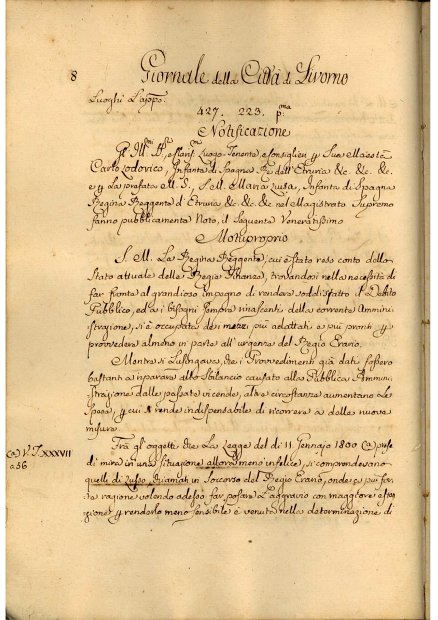 8
Giornale della Città di Livorno
Luoghi Lajopo:
427. 223. p.ma
Notificazione
Gl' Ill.mi Sig.ri Luogo Tenente, e Consiglieri p Sua Maestà
Carlo Lodovico, Infante di Spagna Re dell' Etruria &c. &c. &c.
e p La prefata M. S., S. M. Maria Luisa, Infanta di Spagna
Regina Reggente d' Etruria &c. &c. &c. nel Magistrato Supremo
fanno pubblicamente Noto, il Seguente Veneratissimo
Motuproprio
S. M. La Regina Reggente, cui è stato reso conto dello
Stato attuale delle Regie Finanze, trovandosi nella necessità di
far fronte al grandioso impegno di rendere soddisfatto il Debito
Pubblico, ed a i bisogni sempre rinascenti della corrente Ammini
strazione, si è occupata de i mezzi più adattati e più pronti p
provvedere almeno in parte all' urgenza del Regio Erario.
Mentre si Lusingava, che i Provvedimenti già dati fossero
bastanti a riparare allo Sbilancio causato alla Pubblica Ammini
strazione dalle passate vicende, altre circostanze aumentano Le
Spese, p cui si rende indispensabile di ricorrere a delle nuove
misure.
Tra gl' oggetti che La Legge del dì 11 Gennajo 1800 (a) prese
(a) V. T. XXXVII
di mira in una situazione allora meno infelice, si comprendevano
a 56
quelli di Lusso, chiamati in soccorso del Regio Erario, onde a più for
te ragione volendo adesso far posare L' aggravio con maggiore esten
zione p renderlo meno sensibile è venuta nella determinazione di